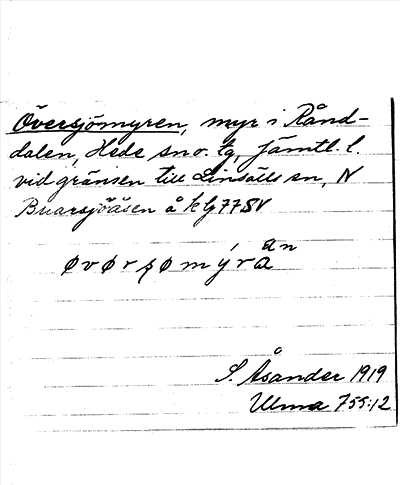 Översjömyren, myr i Rånd-
dalen, Hede sn o. tg, Jämtl. l.
vid gränsen till Linsälls sn, N
Buarsjöåsen å kbl 77SV
øvørşømýra än
S. Åsander 1919
Ulma 755:12